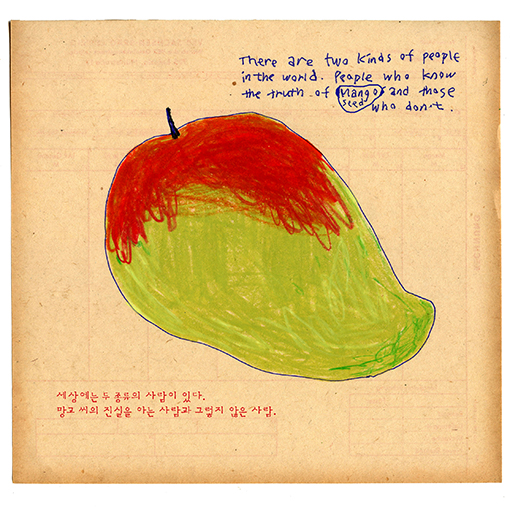 There are two kinds of people
in the world. People who know
the truth of Mango seed and those
who don't.
세상에는 두 종류의 사람이 있다.
망고 씨의 진실을 아는 사람과 그렇지 않은 사람.